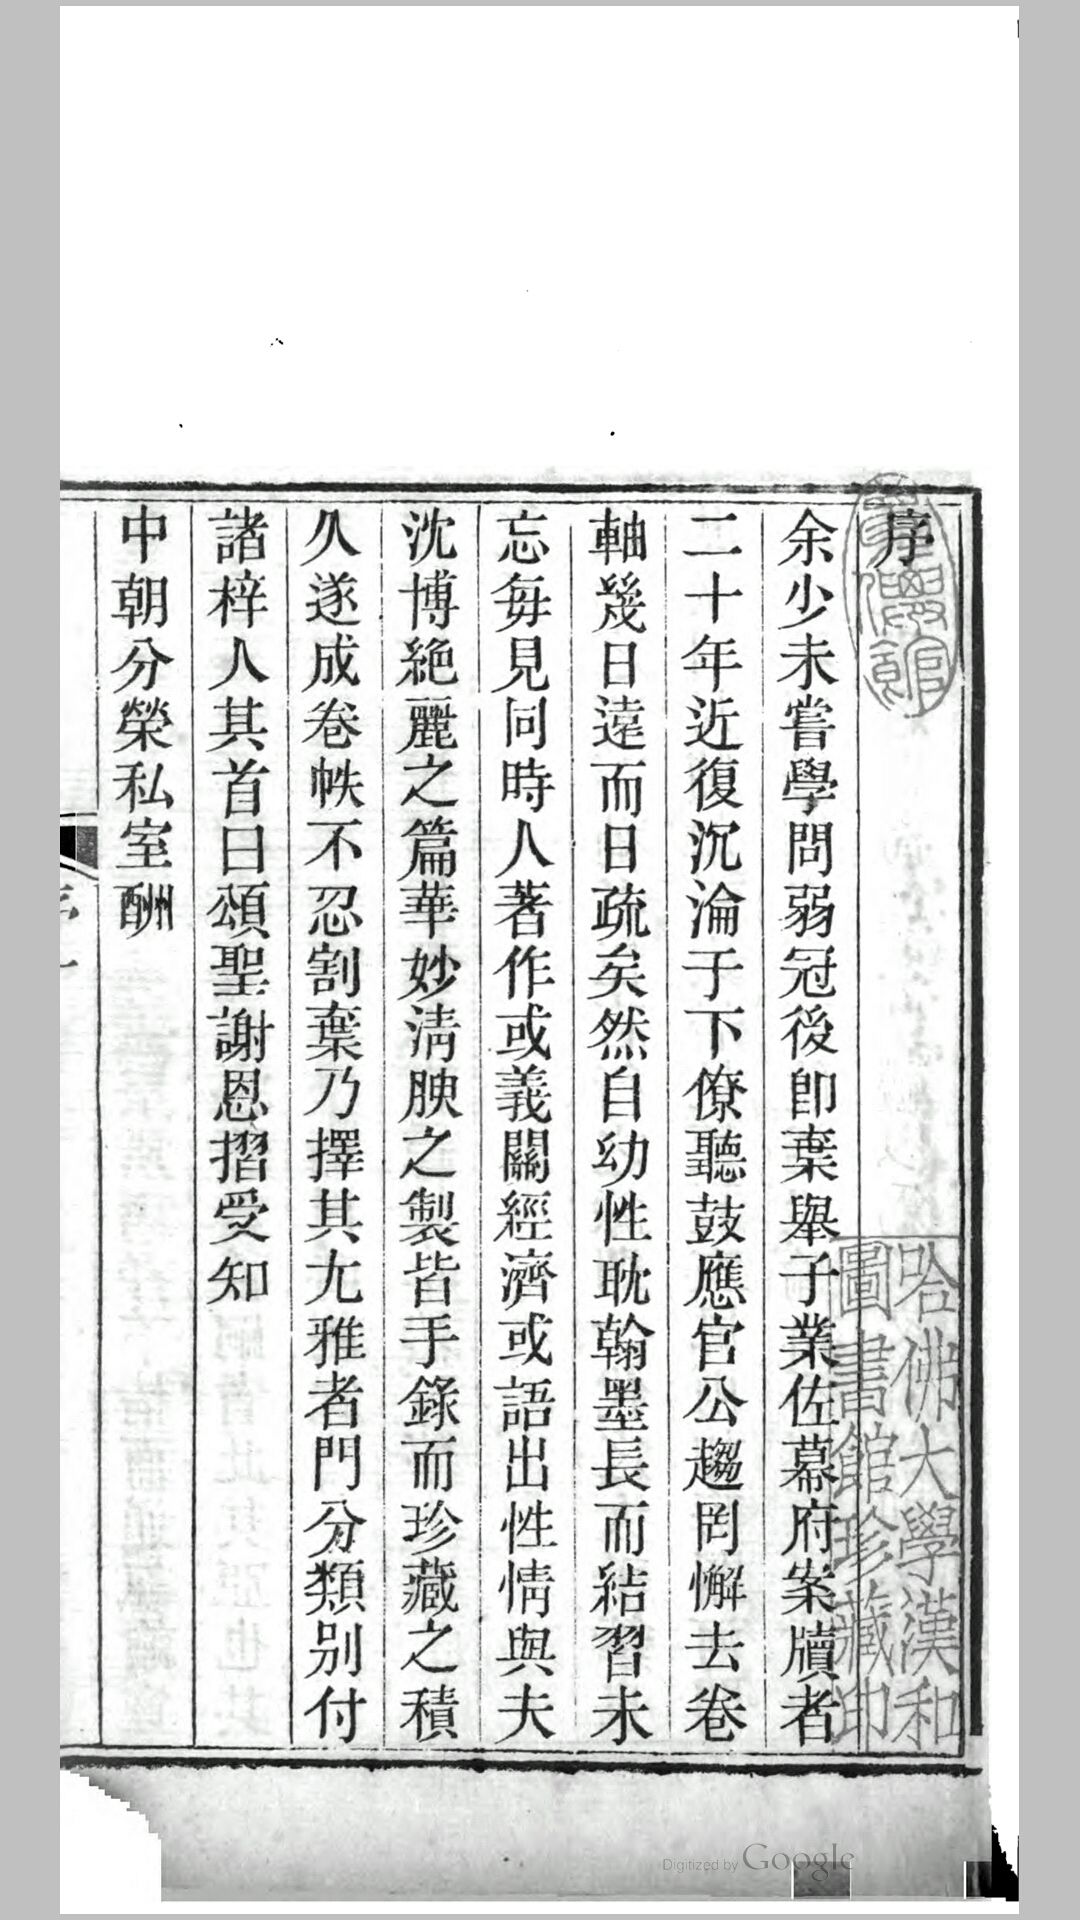 序
余少未嘗學問弱冠後卽葉舉子業佐幕府案牘者
二十年近復沉淪于下僚聽鼓應官公趨罔懈去卷
軸幾日遠而日疏矣然自幼性耽翰墨長而結習未
忘每見同時人著作或義關經濟或語出性情與夫
沈博絕麗之篇華妙淸腴之製皆手錄而珍藏之積
久遂成卷帙不忍割葉乃擇其尤雅者門分類別付
諸梓人其首曰頌聖謝恩摺受知
中朝分榮私室酬
哈佛大學漢和
圖書館珍藏印
Digitized by Google